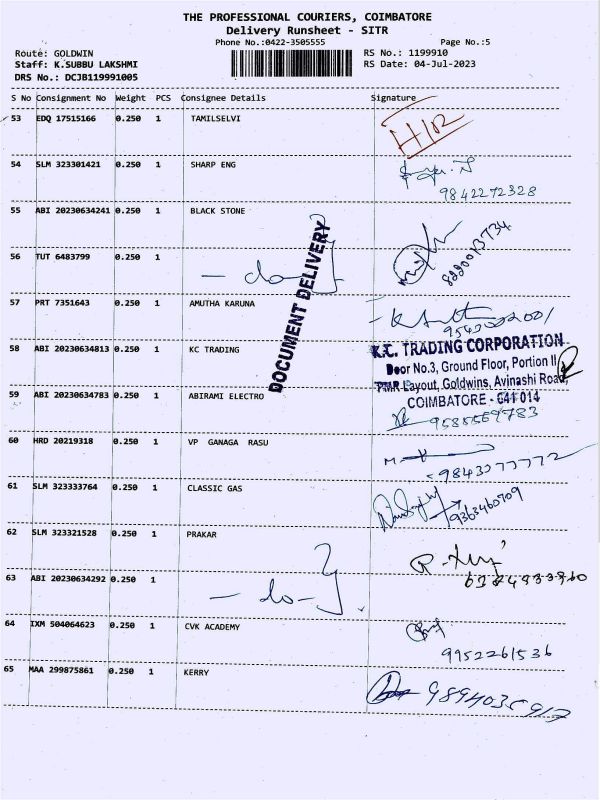 THE PROFESSIONAL COURIERS, COIMBATORE
Delivery Runsheet - SITR
Phone No.:0422-3505555 Page No.:5
Route: GOLDWIN RS No.: 1199910
Staff: K.SUBBU LAKSHMI RS Date: 04-Jul-2023
DRS No.: DCJB119991005
S No Consignment No Weight PCS Consignee Details Signature
53 EDQ 17515166 0.250 1 TAMILSELVI
54 SLM 323301421 0.250 1 SHARP ENG
9842272328
55 ABI 20230634241 0.250 1 BLACK STONE
56 TUT 6483799 0.250 1 - do -
DOCUMENT DELIVERY
57 PRT 7351643 0.250 1 AMUTHA KARUNA
58 ABI 20230634813 0.250 1 KC TRADING
K.C. TRADING CORPORATION
Door No.3, Ground Floor, Portion II
PMR Layout, Goldwins, Avinashi Road,
COIMBATORE - 641 014
59 ABI 20230634783 0.250 1 ABIRAMI ELECTRO
60 HRD 20219318 0.250 1 VP GANAGA RASU
61 SLM 323333764 0.250 1 CLASSIC GAS
9363460709
62 SLM 323321528 0.250 1 PRAKAR
63 ABI 20230634292 0.250 1 - do -
64 IXM 504064623 0.250 1 CVK ACADEMY
9952261536
65 MAA 299875861 0.250 1 KERRY